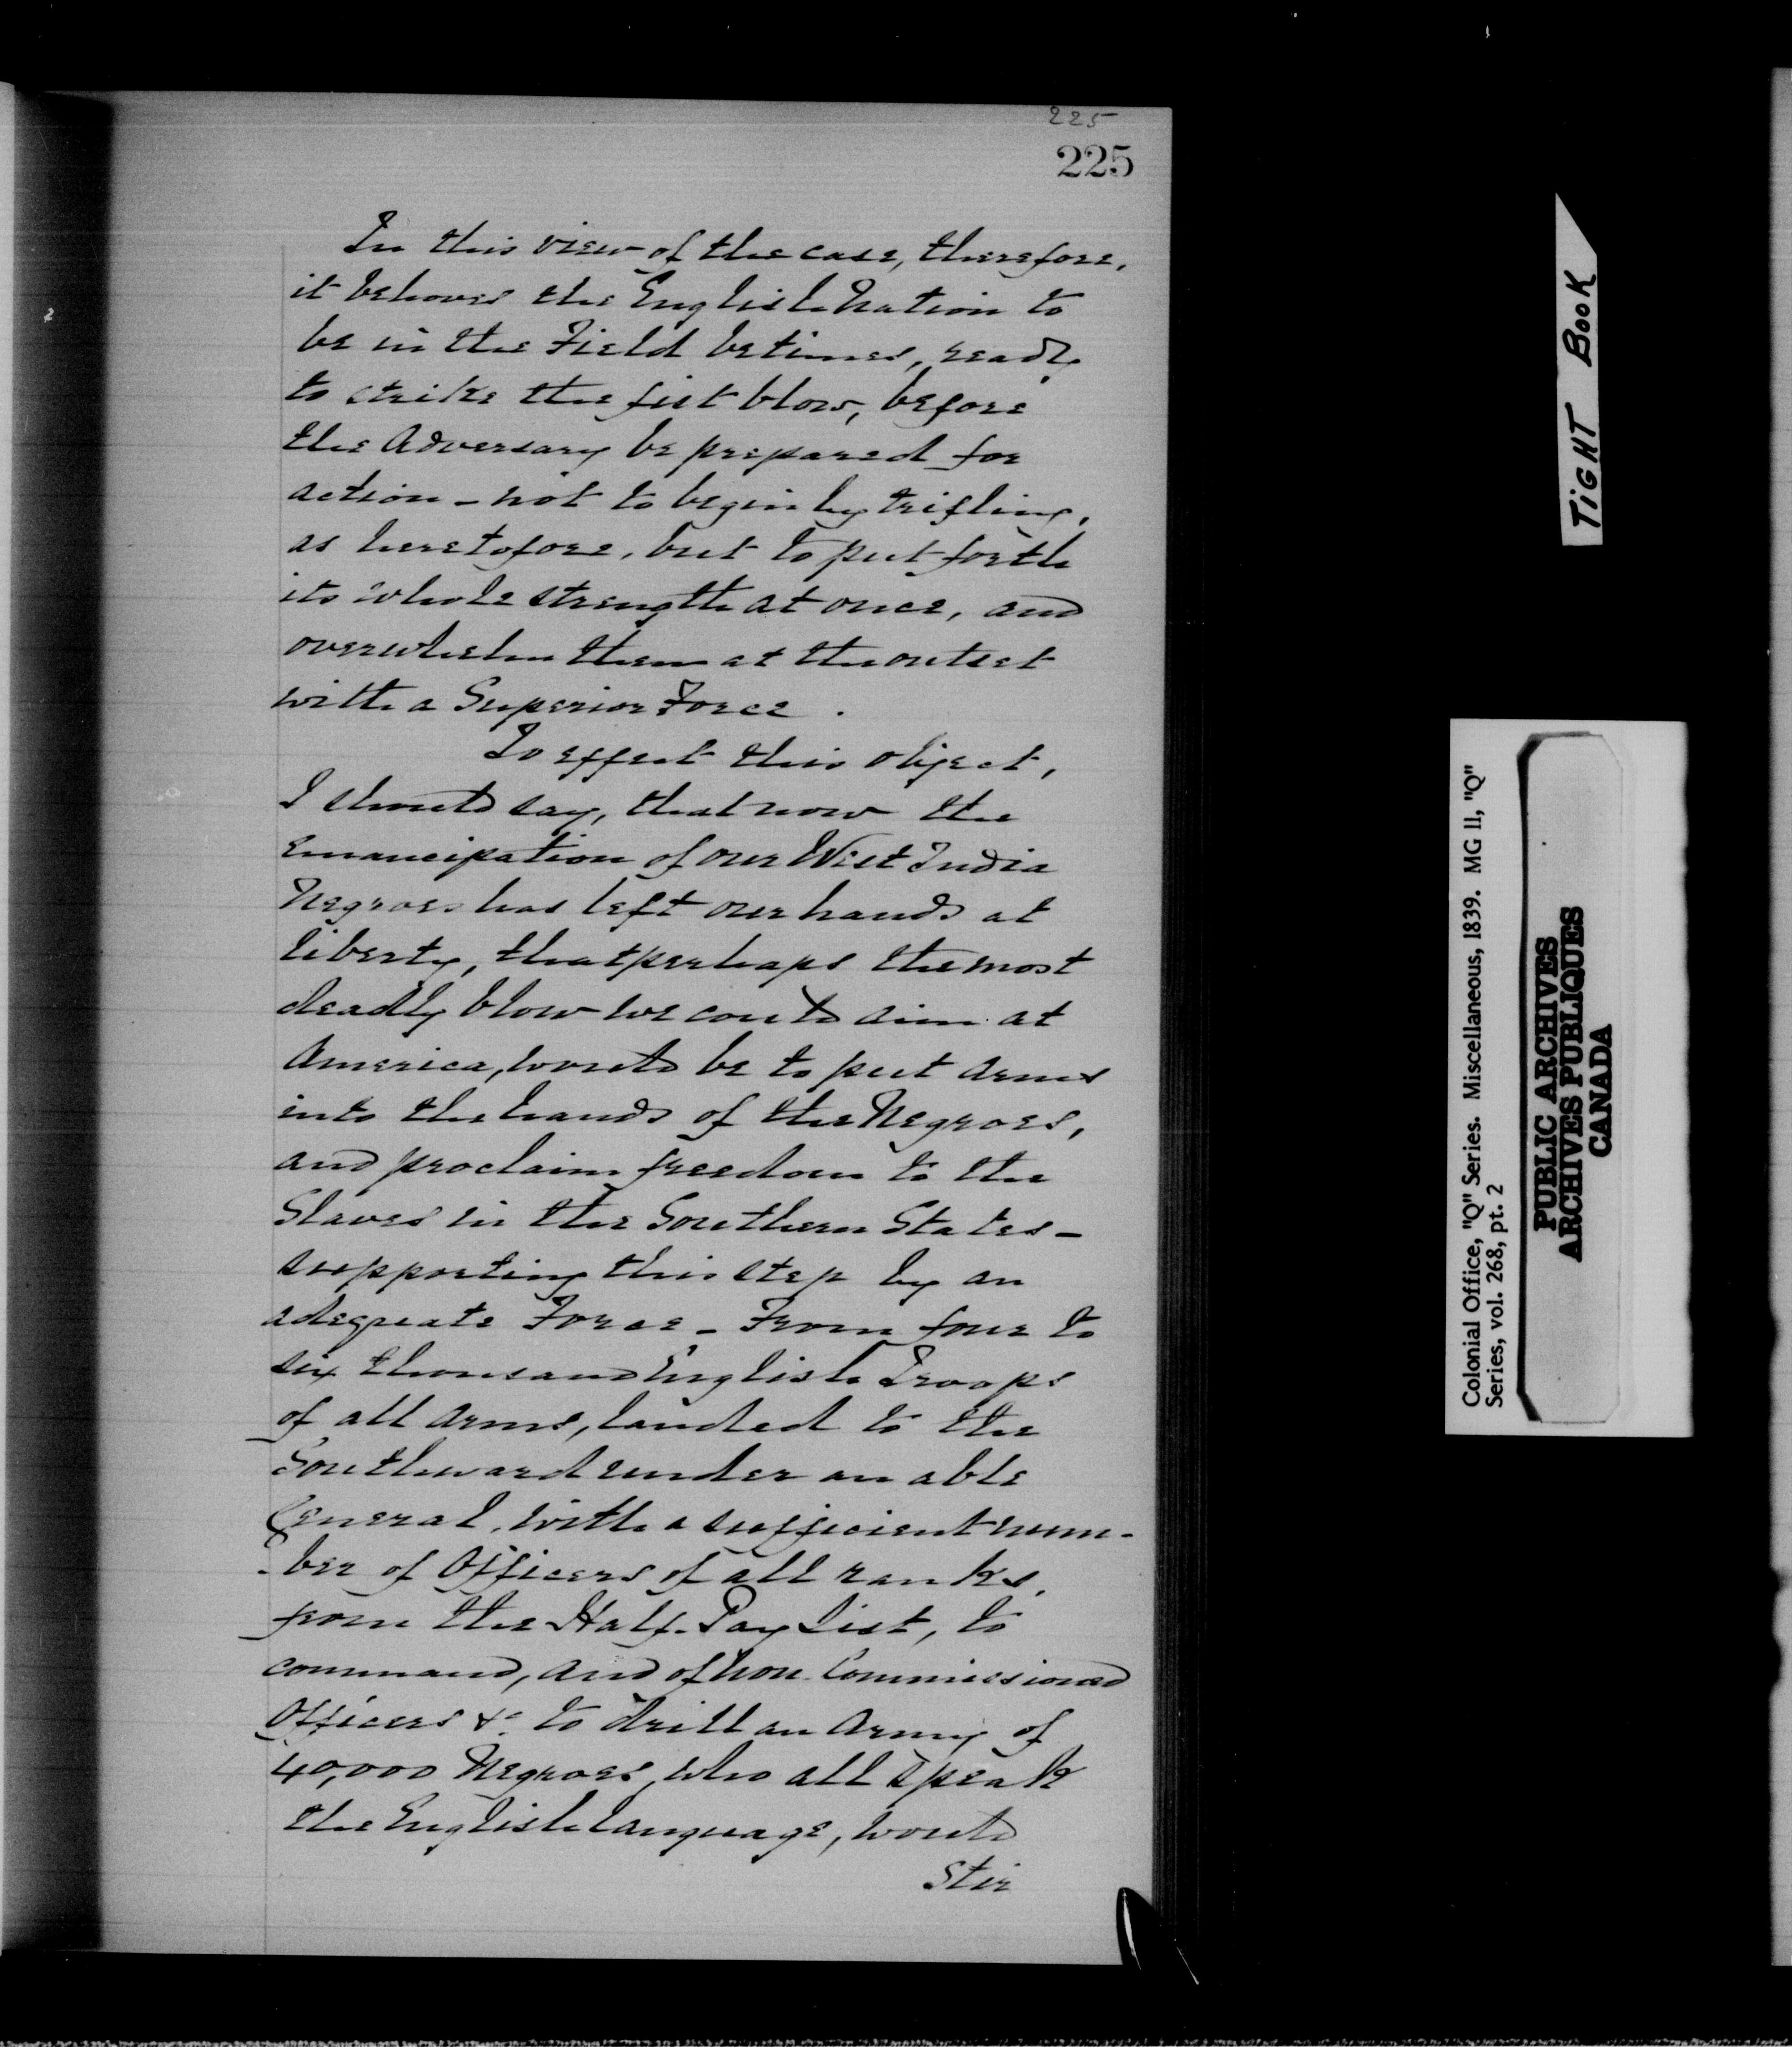 225
225
In this view of the case, therefore,
it behoves the English Nation to
be in the Field betimes, ready
to strike the fist blow, before
the Adversary be prepared for
action - not to begin by trifling,
as heretofore, but to put forth
its whole strength at once, and
overwhelm them at the outset
with a Superior Force.
To effect this object,
I should say, that now the
Emancipation of our West India
Negroes has left our hands at
liberty, that perhaps the most
deadly blow we could aim at
America, would be to put arms
into the hands of the Negroes,
and proclaim freedom to the
Slaves in the Southern States -
supporting this step by an
adequate Force - From four to
six thousand English Troops
of all Arms, landed to the
Southward under an able
General, with a sufficient num-
-ber of Officers of all ranks,
from the Half-Pay List, to
command, and of non-Commissioned
Officers &c. to drill an Army of
40,000 Negroes, who all speak
the English language, would
Stir
TIGHT BOOK
Colonial Office, "Q" Series. Miscellaneous, 1839. MG 11, "Q"
Series, vol. 268, pt. 2
PUBLIC ARCHIVES
ARCHIVES PUBLIQUES
CANADA